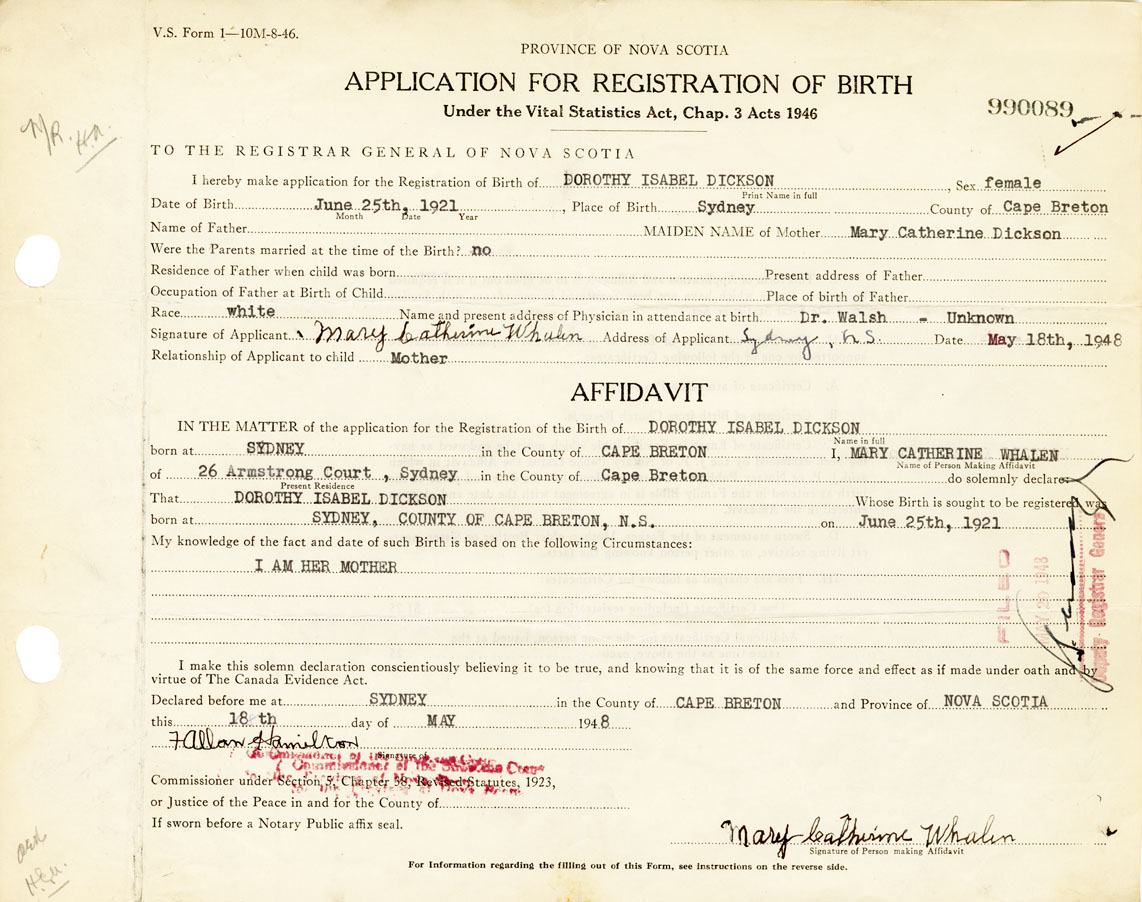 V.S. Form 1—10M-8-46.
PROVINCE OF NOVA SCOTIA
APPLICATION FOR REGISTRATION OF BIRTH
Under the Vital Statistics Act, Chap. 3 Acts 1946
990089
N/R. H.A.
TO THE REGISTRAR GENERAL OF NOVA SCOTIA
I hereby make application for the Registration of Birth of DOROTHY ISABEL DICKSON, Sex female
Print Name in full
Date of Birth June 25th, 1921, Place of Birth Sydney County of Cape Breton
Month Date Year
Name of Father MAIDEN NAME of Mother Mary Catherine Dickson
Were the Parents married at the time of the Birth? no
Residence of Father when child was born Present address of Father
Occupation of Father at Birth of Child Place of birth of Father
Race white Name and present address of Physician in attendance at birth Dr. Walsh - Unknown
Signature of Applicant Mary Catherine Whalen Address of Applicant Sydney, N.S. Date May 18th, 1948
Relationship of Applicant to child Mother
AFFIDAVIT
IN THE MATTER of the application for the Registration of the Birth of DOROTHY ISABEL DICKSON
Name in full
born at SYDNEY in the County of CAPE BRETON I, MARY CATHERINE WHALEN
Name of Person Making Affidavit
of 26 Armstrong Court, Sydney in the County of Cape Breton do solemnly declare:
Present Residence
That DOROTHY ISABEL DICKSON Whose Birth is sought to be registered was
born at SYDNEY, COUNTY OF CAPE BRETON, N.S. on June 25th, 1921
My knowledge of the fact and date of such Birth is based on the following Circumstances:
I AM HER MOTHER
FILED
MAY 20 1948
Deputy Registrar General
I make this solemn declaration conscientiously believing it to be true, and knowing that it is of the same force and effect as if made under oath and by
virtue of The Canada Evidence Act.
Declared before me at SYDNEY in the County of CAPE BRETON and Province of NOVA SCOTIA
this 18th day of MAY 1948
F Allan Hamilton
Signature of
A Commissioner of The Supreme Court
Commissioner under Section 5, Chapter 38, Revised Statutes, 1923,
or Justice of the Peace in and for the County of
If sworn before a Notary Public affix seal.
Mary Catherine Whalen
Signature of Person making Affidavit
For Information regarding the filling out of this Form, see instructions on the reverse side.